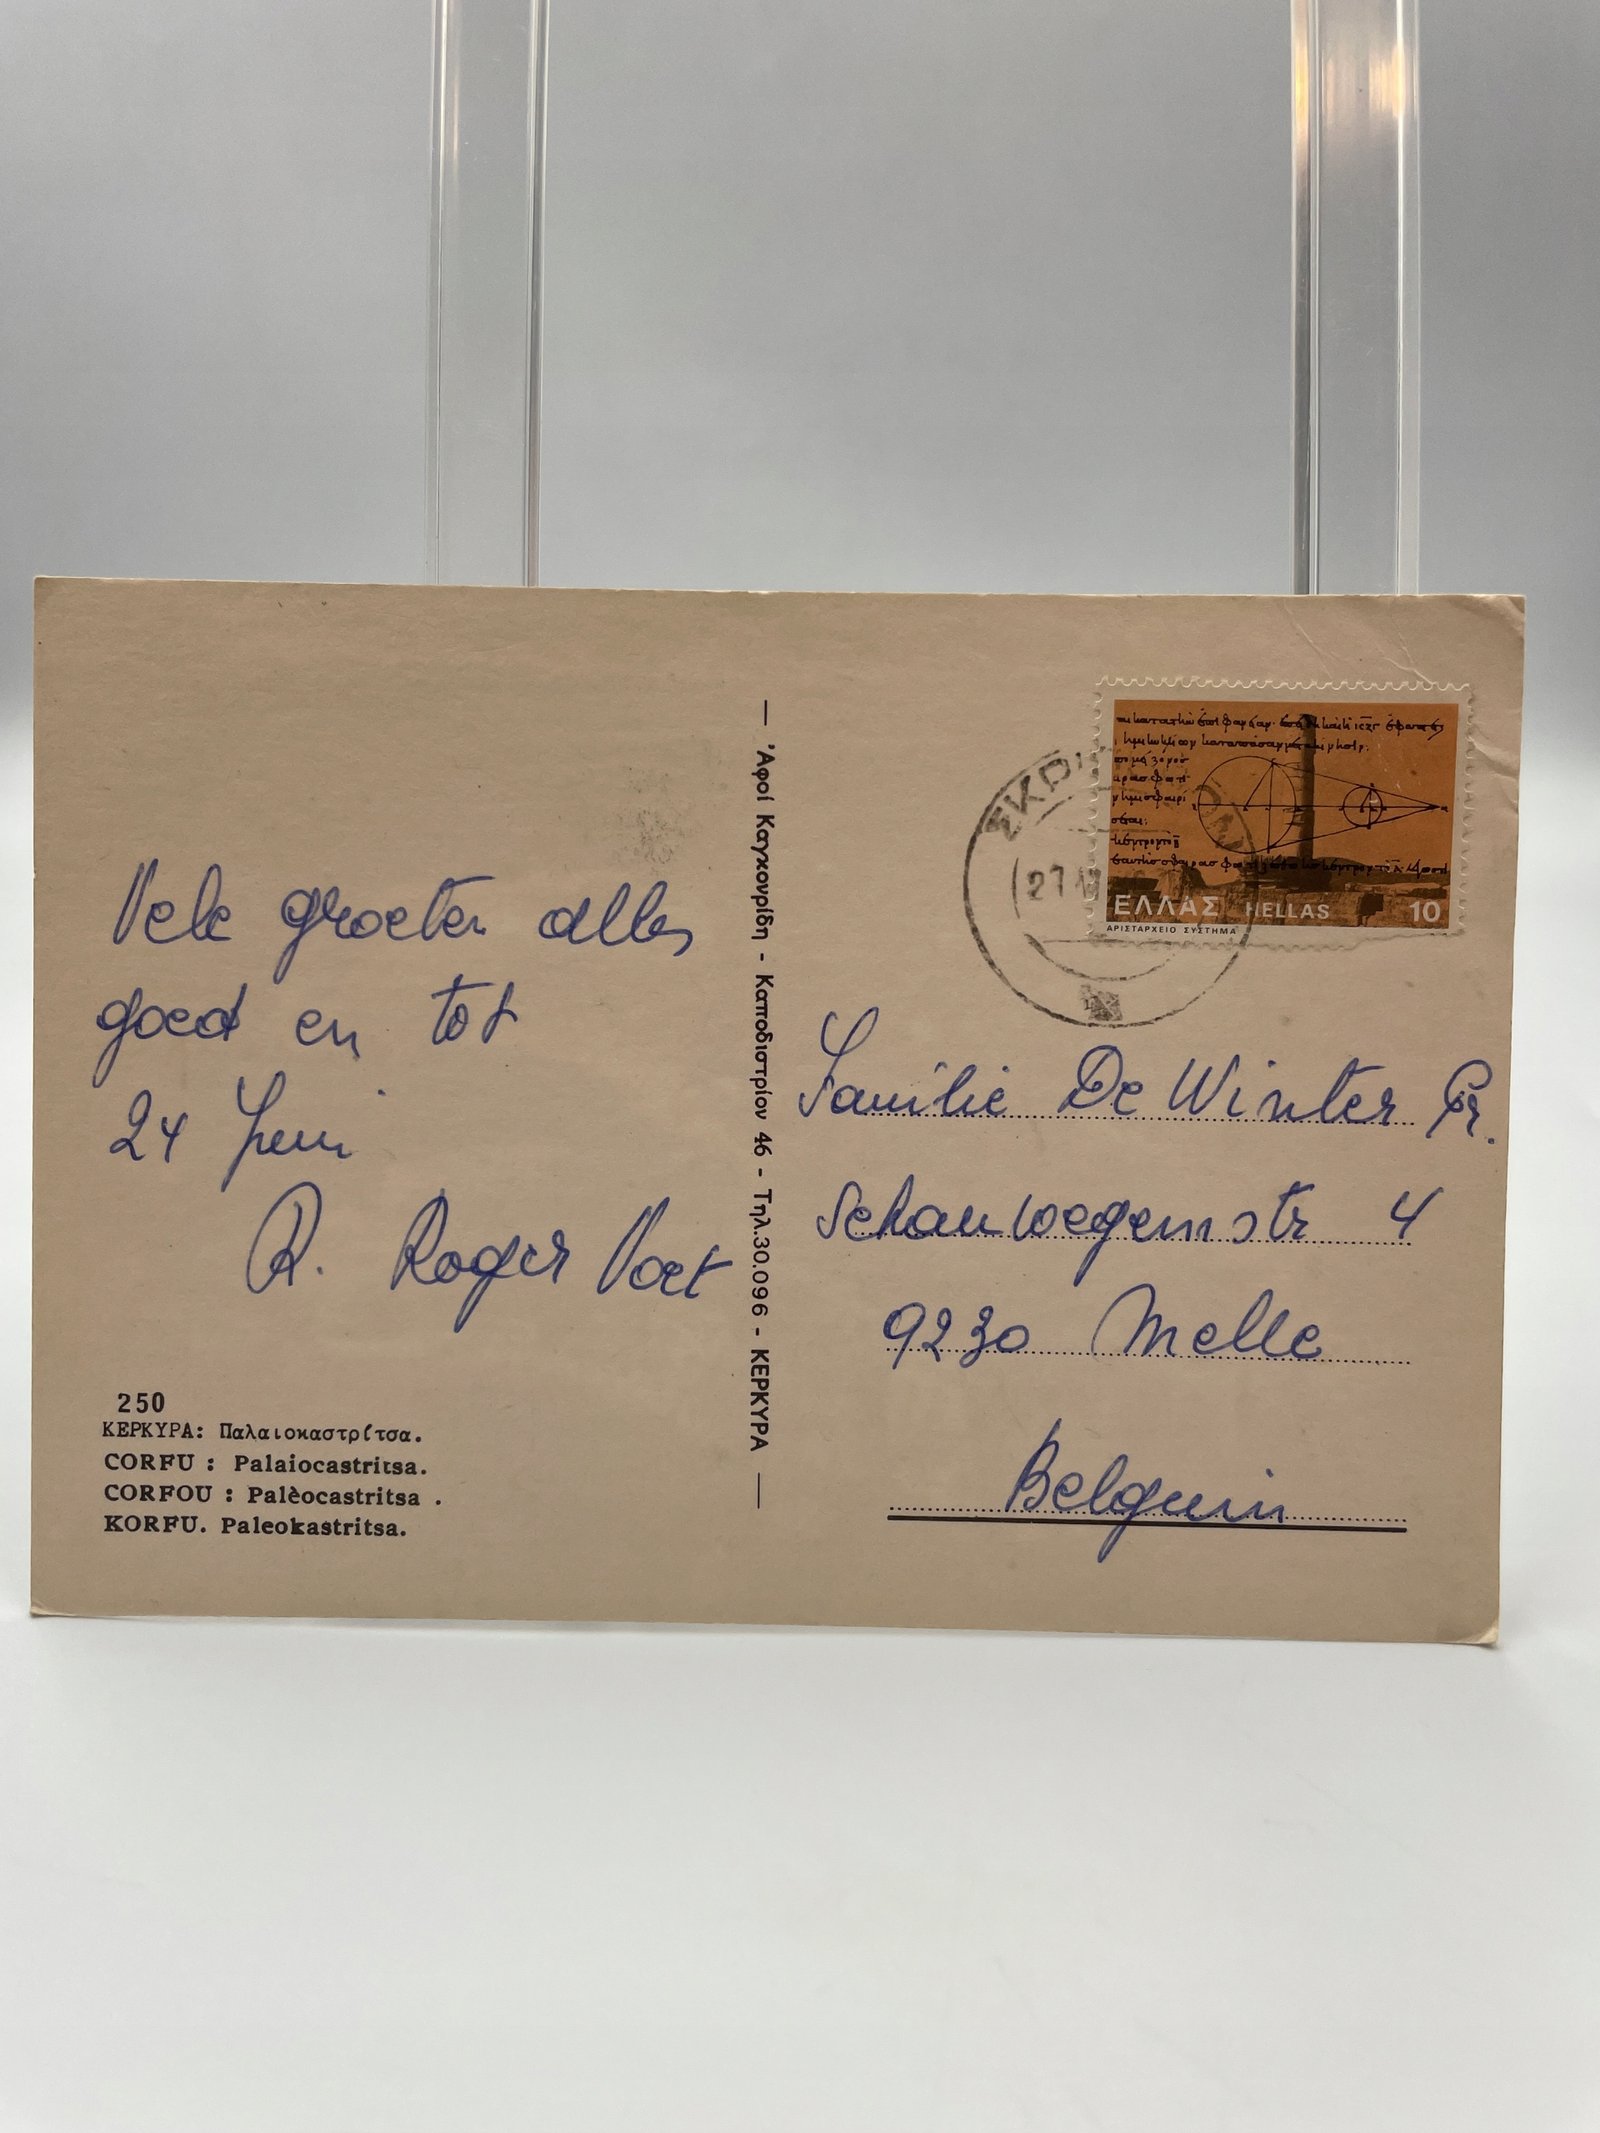 Vele groeten alles
goed en tot
24 Juni
R. Roger Voet
250
ΚΕΡΚΥΡΑ: Παλαιοκαστρίτσα.
CORFU : Palaiocastritsa.
CORFOU : Palèocastritsa .
KORFU. Paleokastritsa.
— Ἀφοί Καγκουρίδη - Καποδιστρίου 46 - Τηλ.30.096 - ΚΕΡΚΥΡΑ —
27
ΕΛΛΑΣ HELLAS 10
ΑΡΙΣΤΑΡΧΕΙΟ ΣΥΣΤΗΜΑ
Familie De Winter Gr.
Schauwegemstr 4
9230 Melle
Belguim